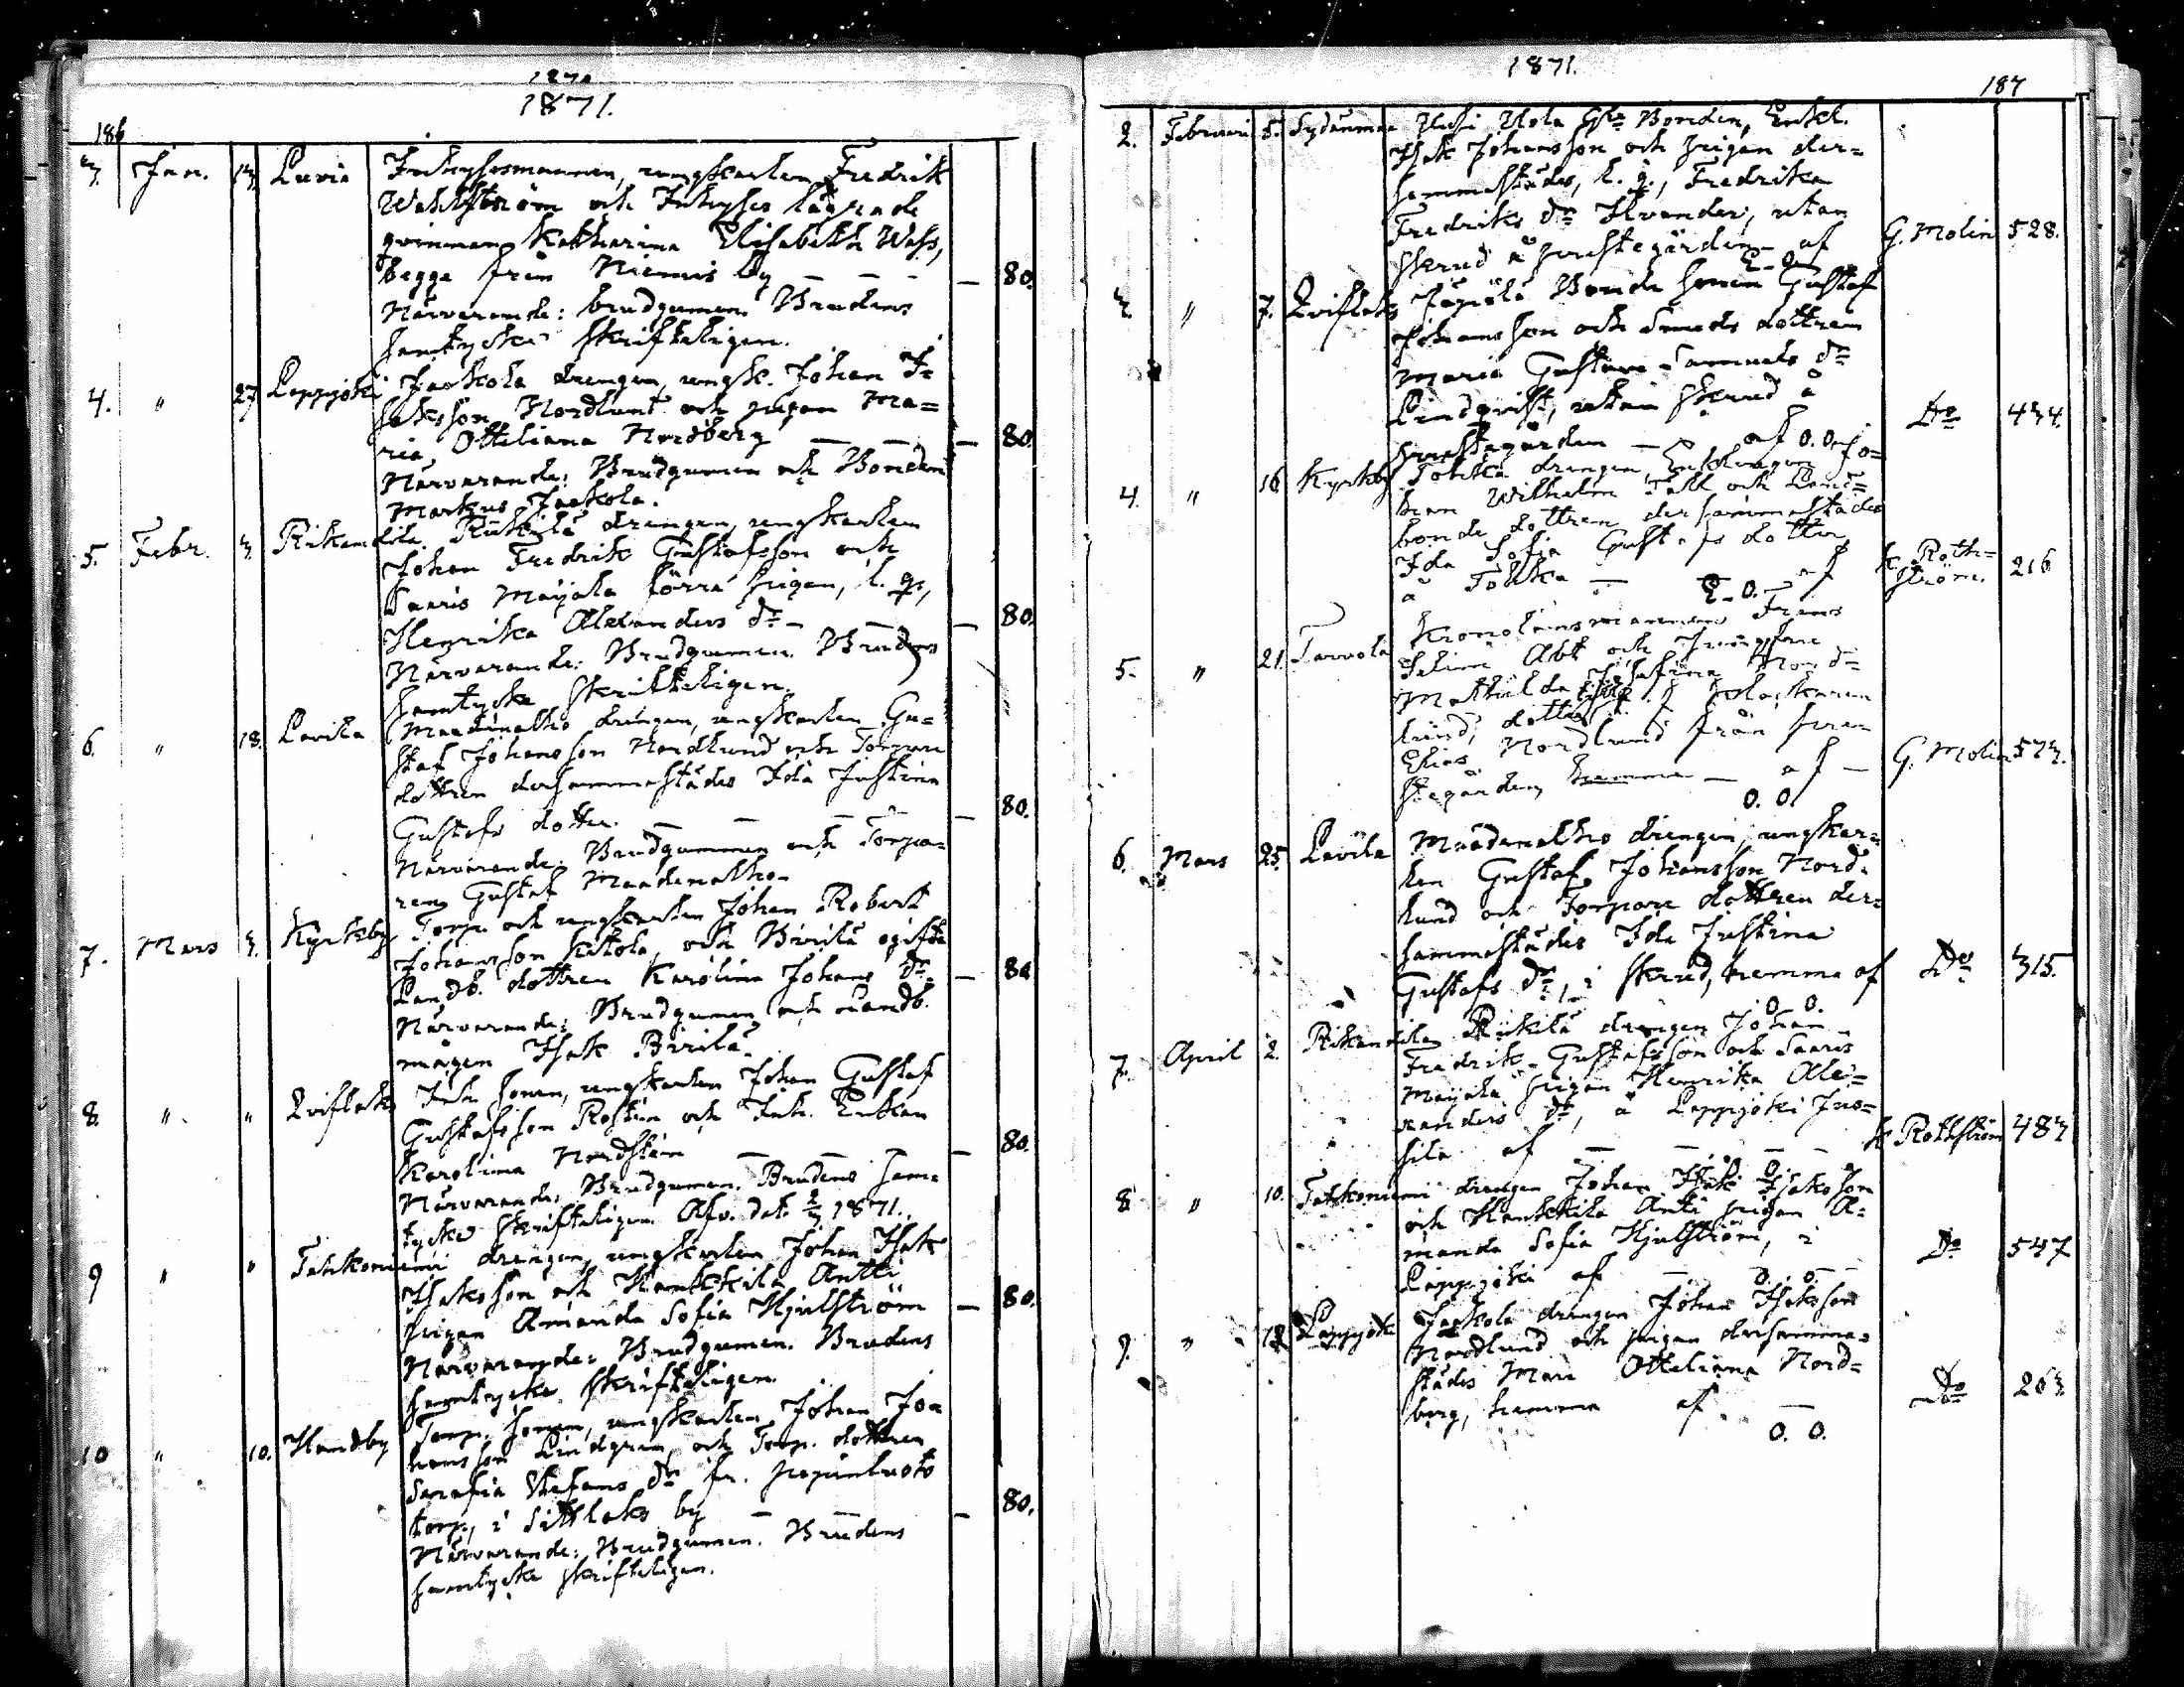 1870
1871.
186
3. Jan. 13. Luvia Inhysesmannen, ungkarlen Fredrik
Wahlström och Inhyses lägrade
qvinnan Katharina Elisabeth Wass,
begge från Niemis by — — — 80.
Närvarande: brudgumen. Brudens
samtycke skrifteligen.
4. " 27 Lappjoki Jaakola drengen, ungk. Johan I=
saksson Nordlund och pigan Ma=
ria Otteliana Nordberg — — — 80.
Närvarande: Brudgumen och Bonden
Markus Jaakola.
5. Febr. 3. Rikandila Rükilä drengen, ungkarlen
Johan Fredrik Gustafsson och
Saaris Mäyälä förra pigan, l. q.,
Henrika Alexanders dr — — — 80.
Närvarande: Brudgumen. Brudens
samtycke skrifteligen.
6. " 18. Lavila Maadenalho drengen, ungkarlen Gu=
staf Johansson Nordlund och Torpare
dottren dersammastädes Ida Justina
Gustafs dotter. — — — 80.
Närvarande: Brudgummen och Torpa=
ren Gustaf Maadenalho.
7. Mars 3. Kyrkby Torp. och ungkarlen Johan Robert
Johansson Katola, och Birilä ogifta
Landb. dottren Karolina Johans dr. — 80
Närvarande: Brudgumen och Landb.
mågen Isak Birilä.
8. " " Qviflaks Inh. sonen, ungkarlen Johan Gustaf
Gustafsson Rostén och Inh. Enkan
Karolina Nordstén — — — 80.
Närvarande: Brudgumen. Brudens sam=
tycke skrifteligen. Afv. dat. 2/3 1871.
9 " " Tahkoniemi drengen, ungkarlen Johan Isak
Isaksson och Hankkila Antti
pigan Amanda Sofia Hjulström — 80.
Närvarande: Brudgumen. Brudens
samtycke skrifteligen.
10 " 10. Handby Torp. sonen, ungkarlen Johan Jo=
hansson Lindgren, och Torp. dottren
Serafia Stefans dr fr.
torp, i Sittlaks by — — — 80.
Närvarande: Brudgumen. Brudens
samtycke skrifteligen.
1871.
187
2. Februari 5. Sydänmaa Uusi Uola Gla Bonden, Enkl.
Isak Johansson och pigan der=
sammastädes, l. q., Fredrika
Fredriks dr Ilvander, utan
skrud å prestegården — af G. Molin 528.
E. O.
3. " 7. Qviflaks Täpälä Bonde sonen Gustaf
Johansson och Smeds dottren
Maria Gustava Samuels dr
Lindqvist, utan skrud å
prestegården — af Do 434.
O. O.
4. " 16 Kyrkby Tohka drengen, Enklingen Jo=
han Wilhelm Fall och Land=
bonde dottren dersammastädes
Ida Sofia Gustafs dotter,
å Tohka — af K. Roth=
ström. 216
E. O.
5. " 21. Tarvola Kronolänsmannen Frans
Selim Abt och Jungfrun
Mathilda Josefina Nord=
lund, dotter t. f. klockaren
Elias Nordlund från pre=
stegården, hemma — af — G. Molin 573.
O. O.
6. Mars 25. Lavila Maadenalho drengen, ungkar=
len Gustaf Johansson Nord=
lund och Torpare dottren der=
sammastädes Ida Justina
Gustafs dr, i skrud, hemma af Do 315.
O. O.
7. April 2. Rikandila Rükilä drengen Johan
Fredrik Gustafsson och Saaris
Mäyälä pigan Henrika Alex=
anders dr, å Lappjoki Jus=
sila af — — — K. Rothström 483
O. O.
8 " 10. Tahkoniemi drengen Johan Isak Isaksson
och Hankkila Antti pigan A=
manda Sofia Hjulström, i
Lappjoki af — — — Do 547
O. O.
9. " 12 Lappjoki Jaakola drengen Johan Isaksson
Nordlund och pigan dersamma=
städes Maria Otteliana Nord=
berg, hemma af — Do 263
O. O.